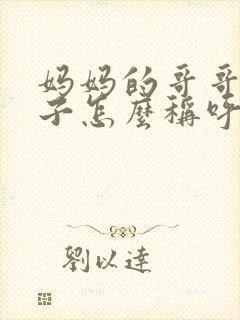 妈妈的哥哥
子怎麼稱呼
劉以達